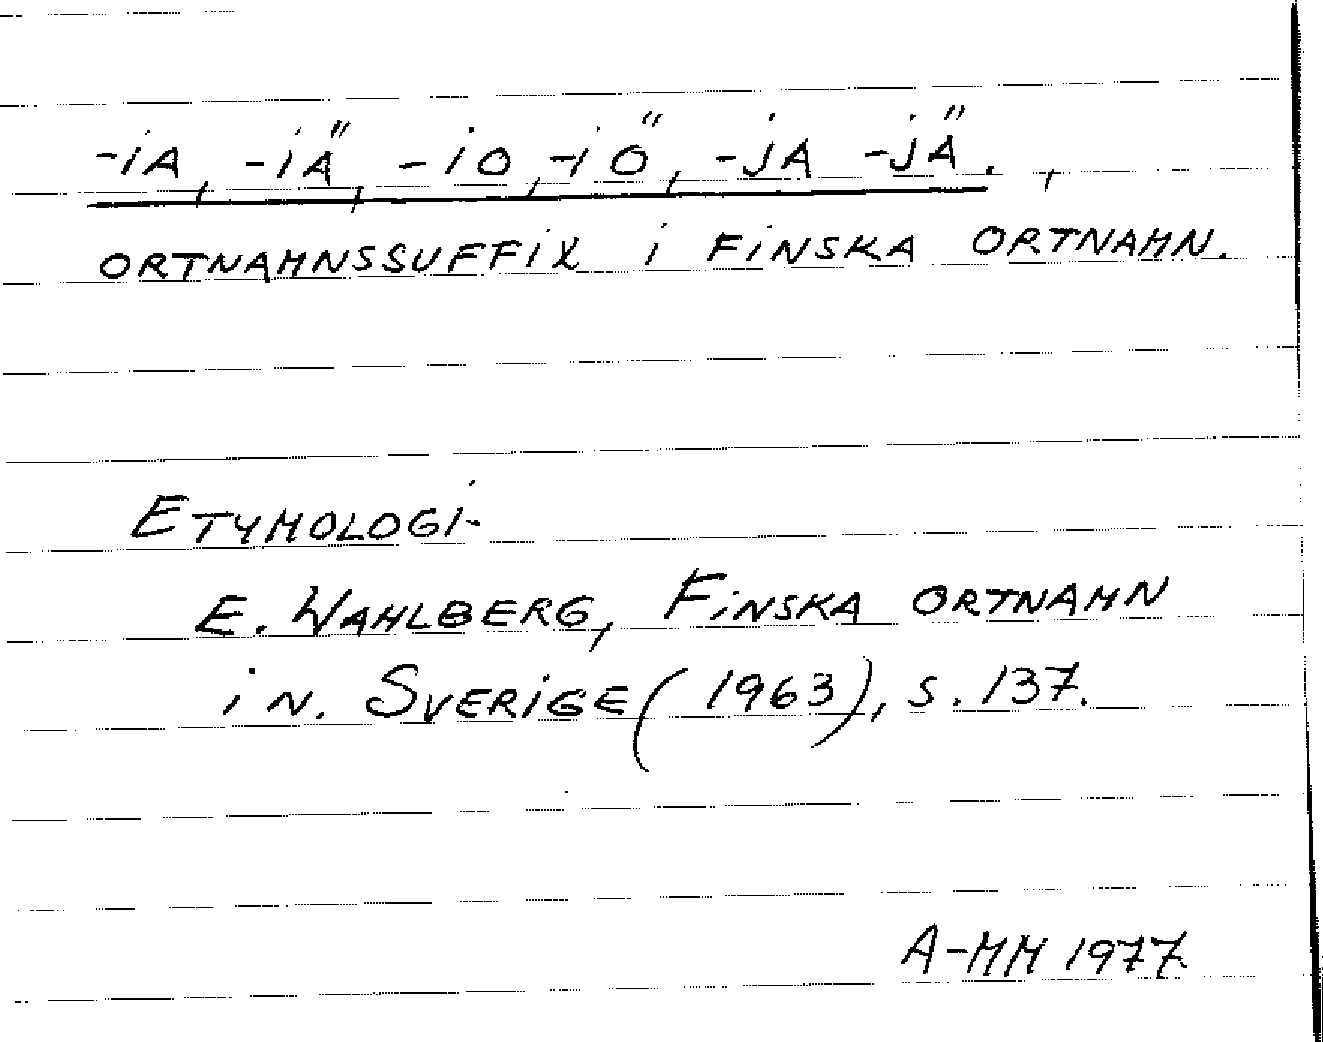 -iA, -iÄ, -iO, -iÖ, -jA -jÄ.,
ORTNAMNSSUFFIX i FINSKA ORTNAMN.
ETYMOLOGI-
E. WAHLBERG, FINSKA ORTNAMN
i N. SVERIGE (1963), S. 137.
A-MM 1977